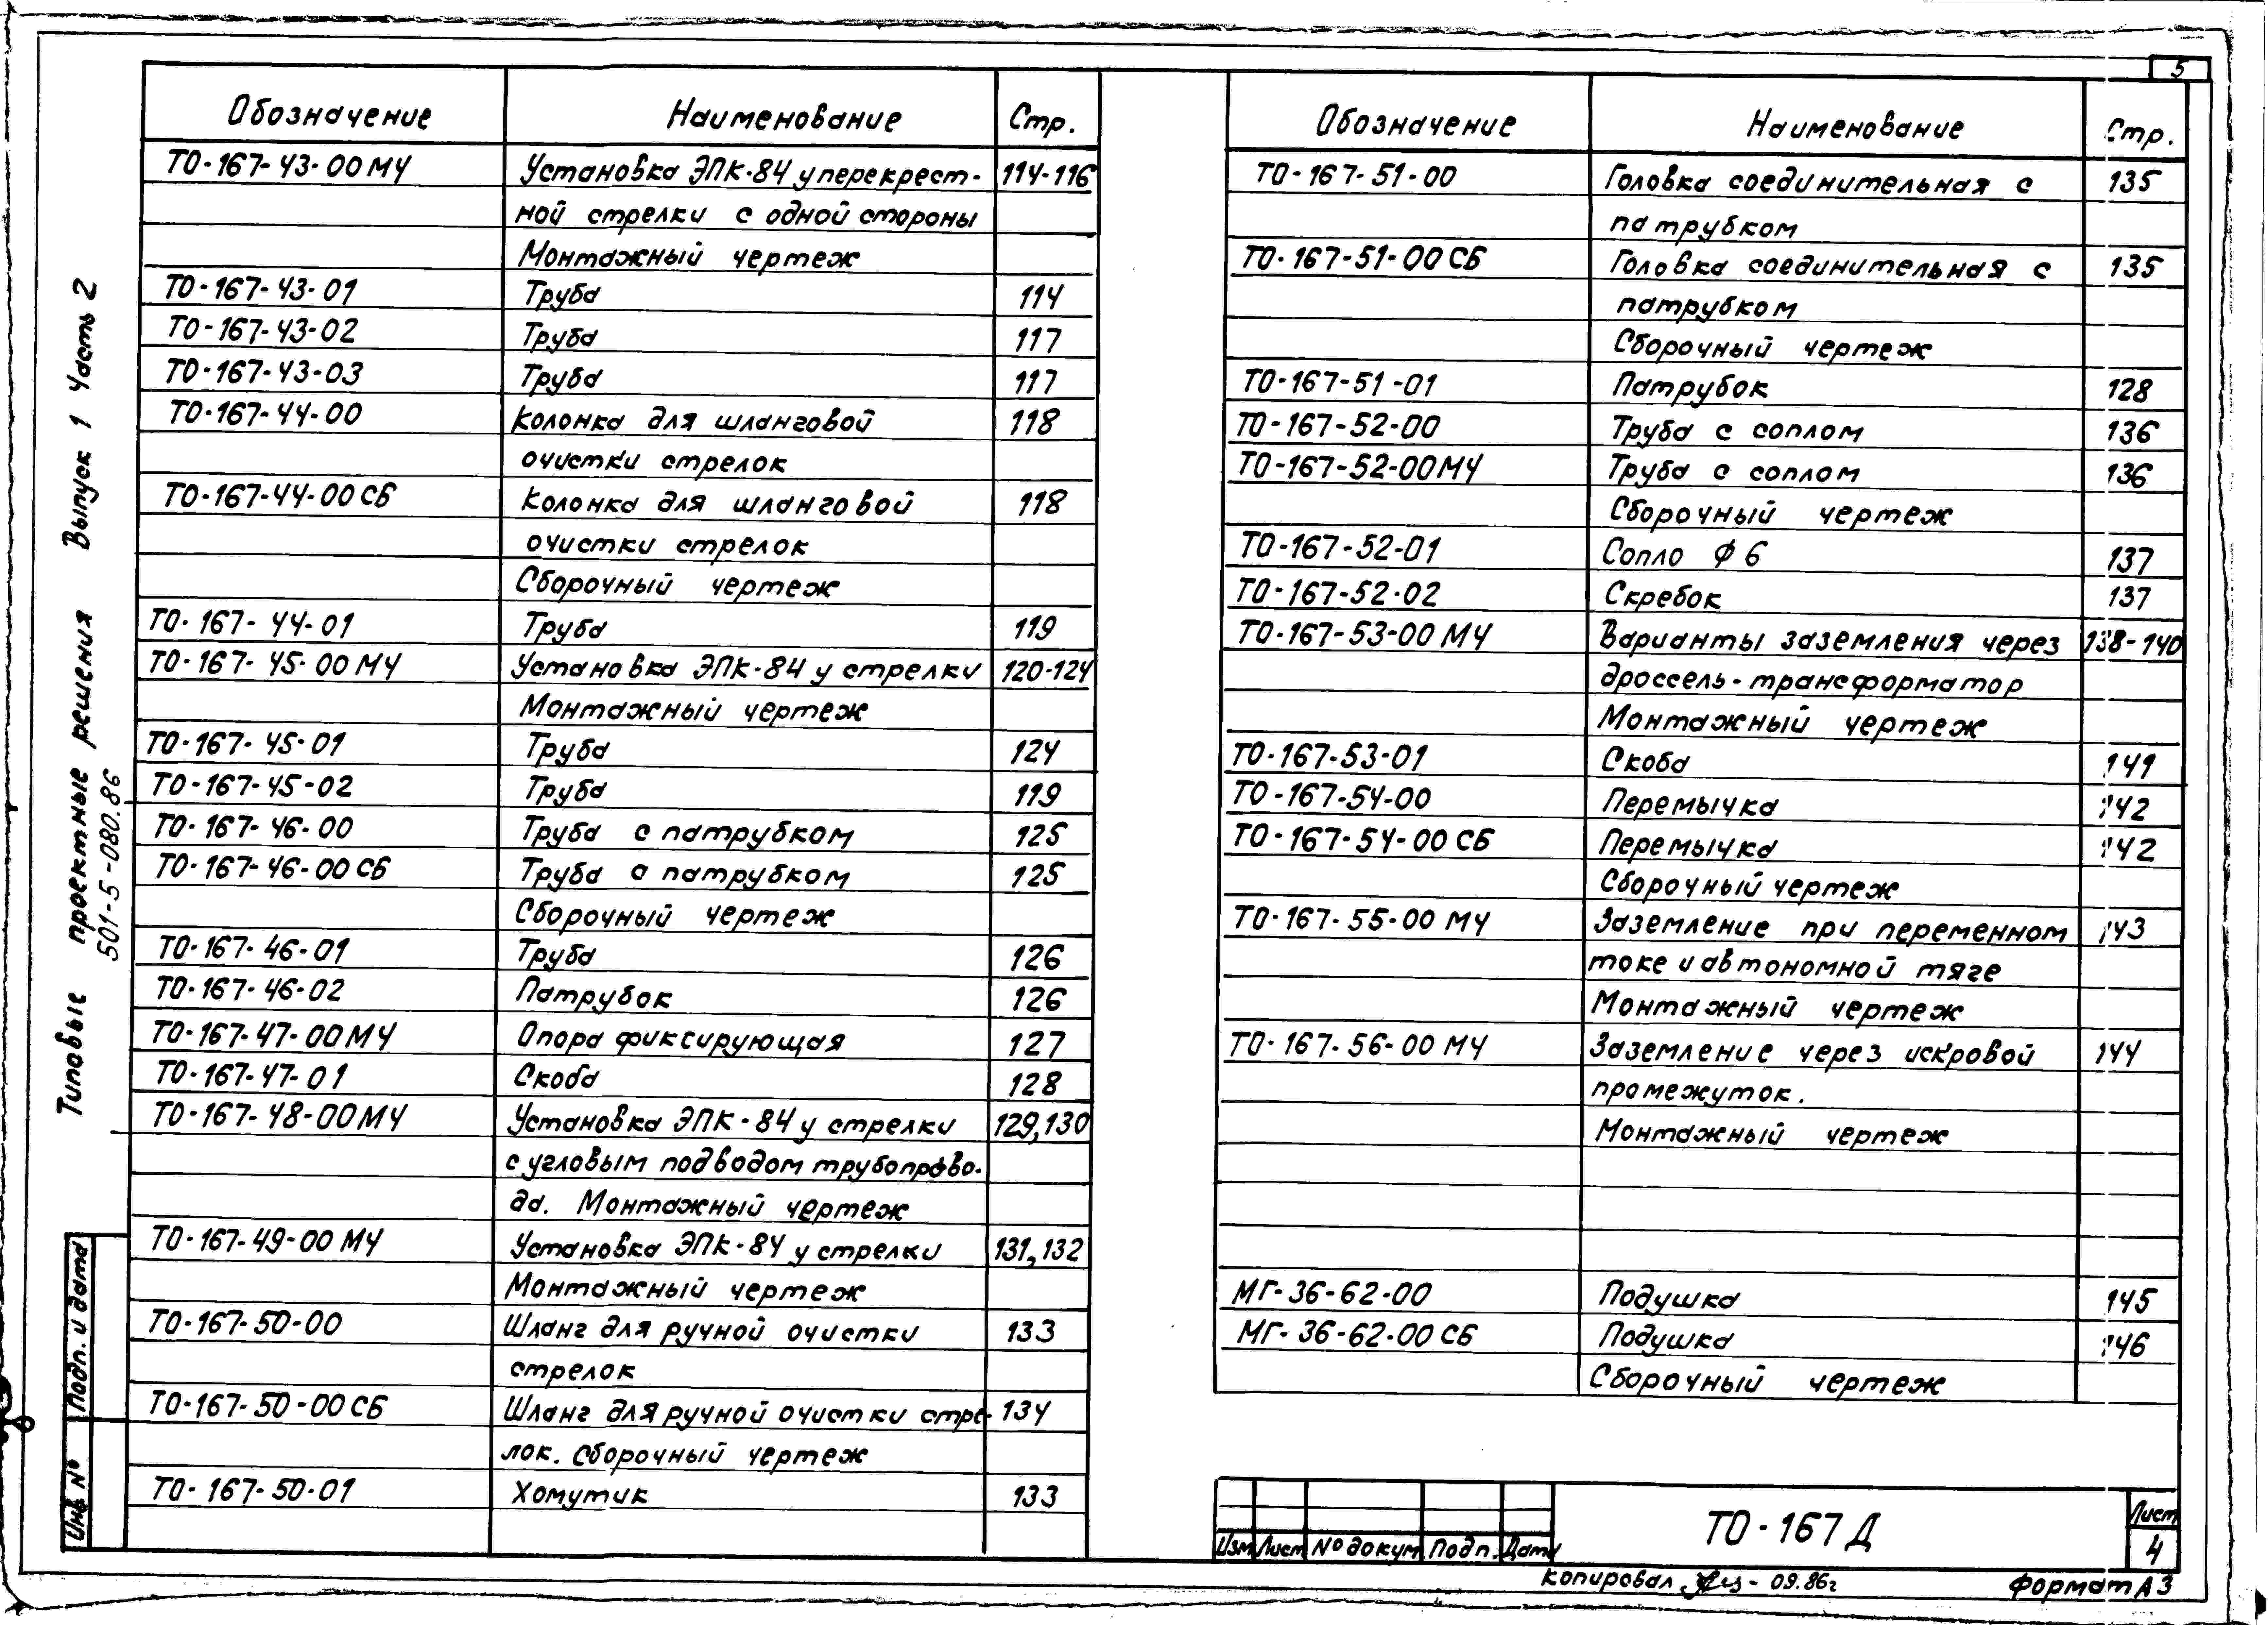 5
Обозначение Наименование Стр.
ТО-167-43-00МЧ Установка ЭПК-84 у перекрест- 114-116
ной стрелки с одной стороны
Монтажный чертеж
ТО-167-43-01 Труба 114
ТО-167-43-02 Труба 117
ТО-167-43-03 Труба 117
ТО-167-44-00 Колонка для шланговой 118
очистки стрелок
ТО-167-44-00СБ Колонка для шланговой 118
очистки стрелок
Сборочный чертеж
ТО-167-44-01 Труба 119
ТО-167-45-00МЧ Установка ЭПК-84 у стрелки 120-124
Монтажный чертеж
ТО-167-45-01 Труба 124
ТО-167-45-02 Труба 119
ТО-167-46-00 Труба с патрубком 125
ТО-167-46-00СБ Труба с патрубком 125
Сборочный чертеж
ТО-167-46-01 Труба 126
ТО-167-46-02 Патрубок 126
ТО-167-47-00МЧ Опора фиксирующая 127
ТО-167-47-01 Скоба 128
ТО-167-48-00МЧ Установка ЭПК-84 у стрелки 129,130
с угловым подводом трубопрово-
да. Монтажный чертеж
ТО-167-49-00МЧ Установка ЭПК-84 у стрелки 131,132
Монтажный чертеж
ТО-167-50-00 Шланг для ручной очистки 133
стрелок
ТО-167-50-00СБ Шланг для ручной очистки стре- 134
лок. Сборочный чертеж
ТО-167-50-01 Хомутик 133
Обозначение Наименование Стр.
ТО-167-51-00 Головка соединительная с 135
патрубком
ТО-167-51-00СБ Головка соединительная с 135
патрубком
Сборочный чертеж
ТО-167-51-01 Патрубок 128
ТО-167-52-00 Труба с соплом 136
ТО-167-52-00МЧ Труба с соплом 136
Сборочный чертеж
ТО-167-52-01 Сопло Ф6 137
ТО-167-52-02 Скребок 137
ТО-167-53-00МЧ Варианты заземления через 138-140
дроссель-трансформатор
Монтажный чертеж
ТО-167-53-01 Скоба 141
ТО-167-54-00 Перемычка 142
ТО-167-54-00СБ Перемычка 142
Сборочный чертеж
ТО-167-55-00МЧ Заземление при переменном 143
токе и автономной тяге
Монтажный чертеж
ТО-167-56-00МЧ Заземление через искровой 144
промежуток.
Монтажный чертеж
МГ-36-62-00 Подушка 145
МГ-36-62-00СБ Подушка 146
Сборочный чертеж
Типовые проектные решения Выпуск 1 Часть 2
501-5-080.86
Подп. и дата
Инв. №
Изм Лист № докум Подп. Дата
ТО-167Д
Лист
4
Копировал 09.86г
Формат А3